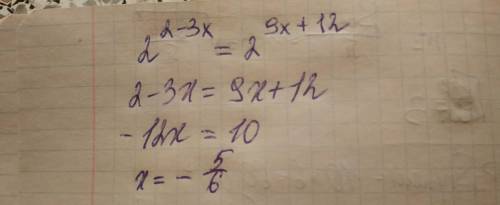 2^{2-3x} = 2^{9x+12}
2-3x = 9x+12
-12x = 10
x = - 5/6